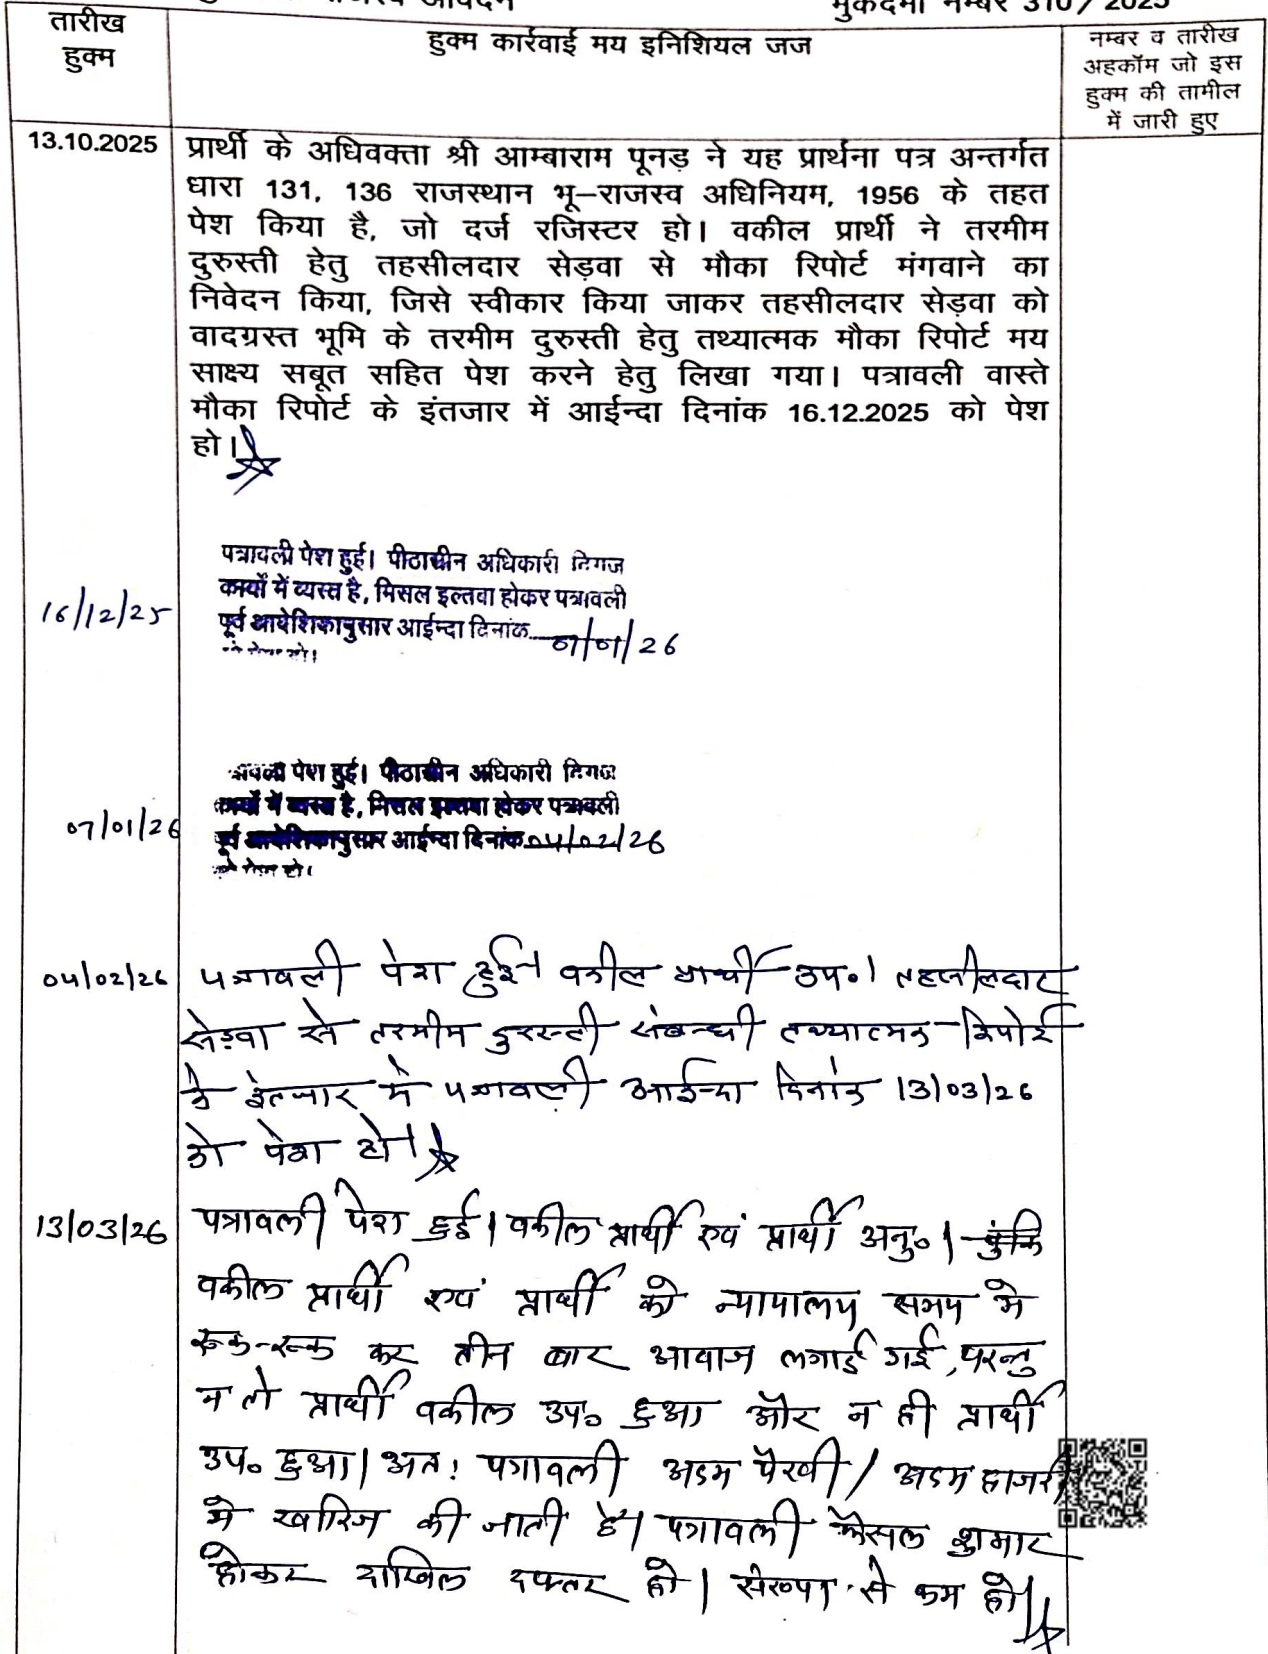 आवेदन
मुकदमा नम्बर 310/2025
तारीख
हुक्म
हुक्म कार्रवाई मय इनिशियल जज
नम्बर व तारीख
अहकॉम जो इस
हुक्म की तामील
में जारी हुए
13.10.2025
प्रार्थी के अधिवक्ता श्री आम्बाराम पूनड़ ने यह प्रार्थना पत्र अन्तर्गत
धारा 131, 136 राजस्थान भू–राजस्व अधिनियम, 1956 के तहत
पेश किया है, जो दर्ज रजिस्टर हो। वकील प्रार्थी ने तरमीम
दुरुस्ती हेतु तहसीलदार सेड़वा से मौका रिपोर्ट मंगवाने का
निवेदन किया, जिसे स्वीकार किया जाकर तहसीलदार सेड़वा को
वादग्रस्त भूमि के तरमीम दुरुस्ती हेतु तथ्यात्मक मौका रिपोर्ट मय
साक्ष्य सबूत सहित पेश करने हेतु लिखा गया। पत्रावली वास्ते
मौका रिपोर्ट के इंतजार में आईन्दा दिनांक 16.12.2025 को पेश
हो।
16/12/25
पत्रावली पेश हुई। पीठासीन अधिकारी
कार्यों में व्यस्त है, मिसल इल्तवा होकर पत्रावली
पूर्व आदेशिकानुसार आईन्दा दिनांक 07/01/26
07/01/26
पेश हुई। पीठासीन अधिकारी
कार्यों में व्यस्त है, मिसल इल्तवा होकर पत्रावली
पूर्व आदेशिकानुसार आईन्दा दिनांक 04/02/26
04/02/26
पत्रावली पेश हुई। वकील प्रार्थी उप०। तहसीलदार
सेड़वा से तरमीम दुरस्ती संबन्धी तथ्यात्मक रिपोर्ट
के इंतजार मे पत्रावली आईन्दा दिनांक 13/03/26
को पेश हो।
13/03/26
पत्रावली पेश हुई। वकील प्रार्थी एवं प्रार्थी अनु०। चुंकि
वकील प्रार्थी एवं प्रार्थी को न्यायालय समय मे
रूक-रूक कर तीन बार आवाज लगाई गई, परन्तु
न तो प्रार्थी वकील उप० हुआ और न ही प्रार्थी
उप० हुआ। अतः पत्रावली अदम पैरवी/अदम हाजरी
मे खारिज की जाती है। पत्रावली फैसल शुमार
होकर दाखिल दफ्तर हो। संख्या से कम हो।